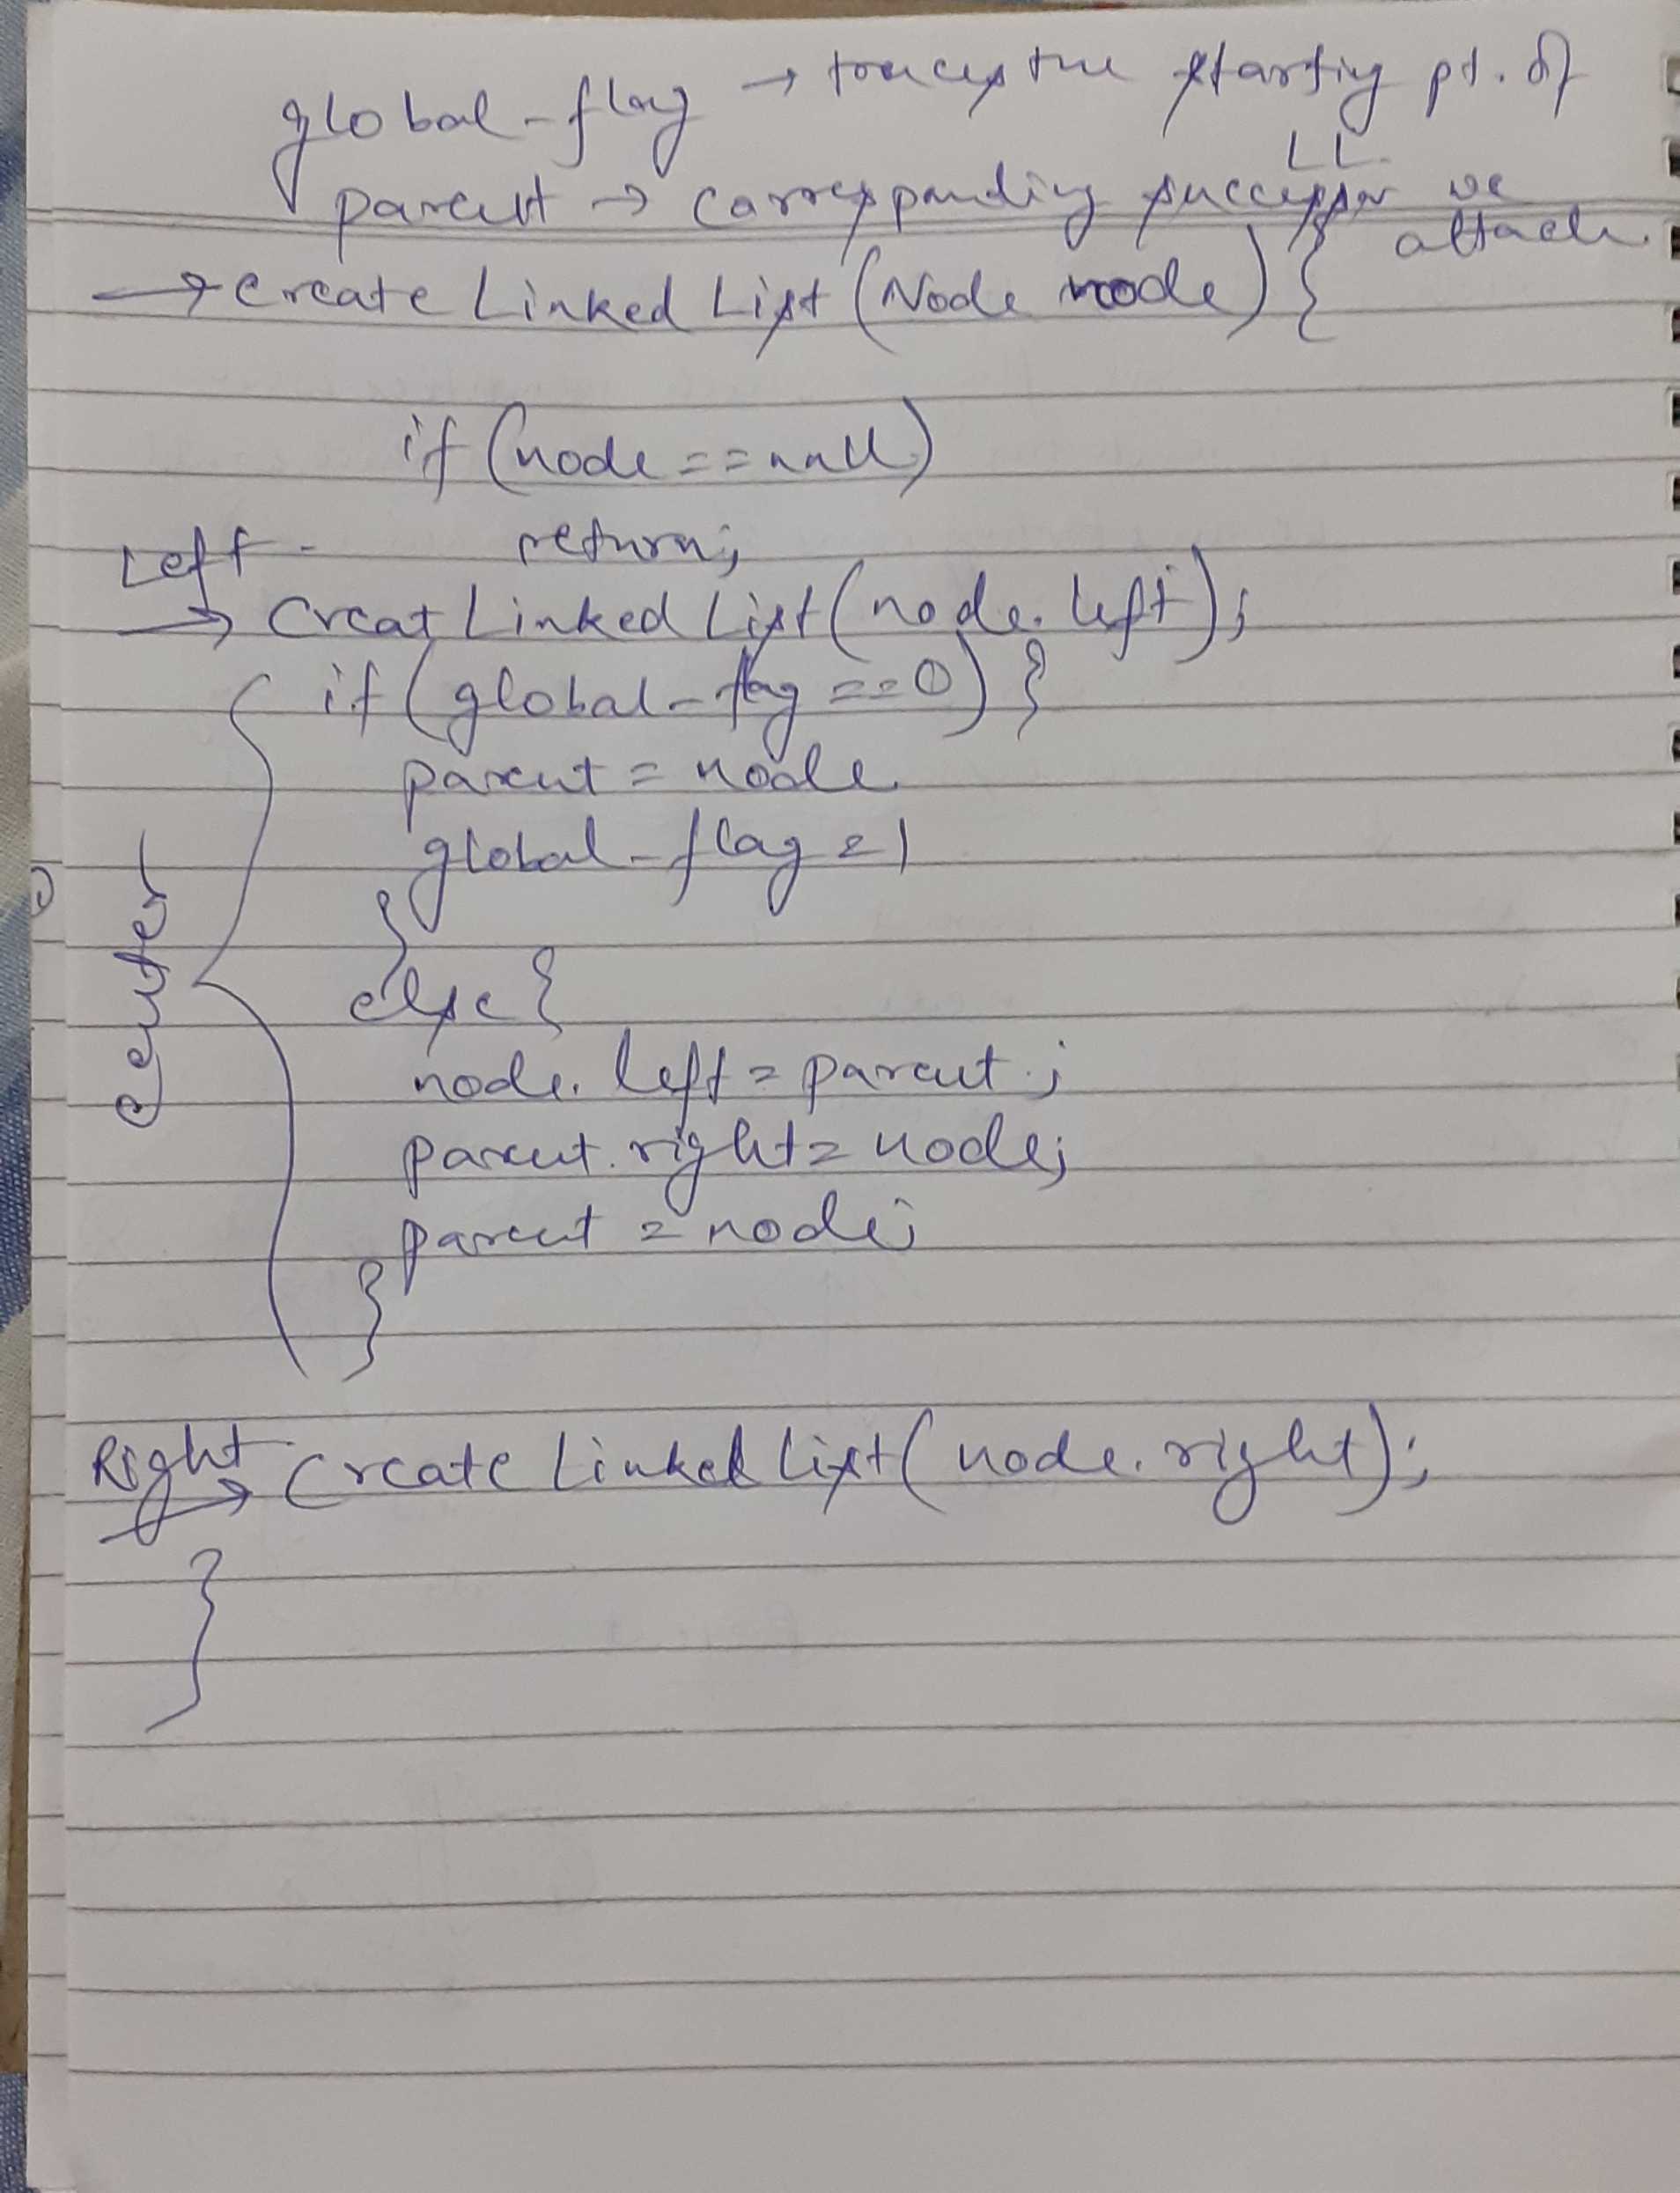 global-flag → traces the starting pt. of
LL.
parent → corresponding successor we
attach.
→ create Linked List (Node node) {
if (node == null)
return;
Left -
→ Creat Linked List (node. left);
if (global-flag == 0) {
parent = node
global-flag = 1
}
else {
center
node. left = parent ;
parent. right = node;
parent = node;
}
Right
→ Create Linked List ( node. right);
}